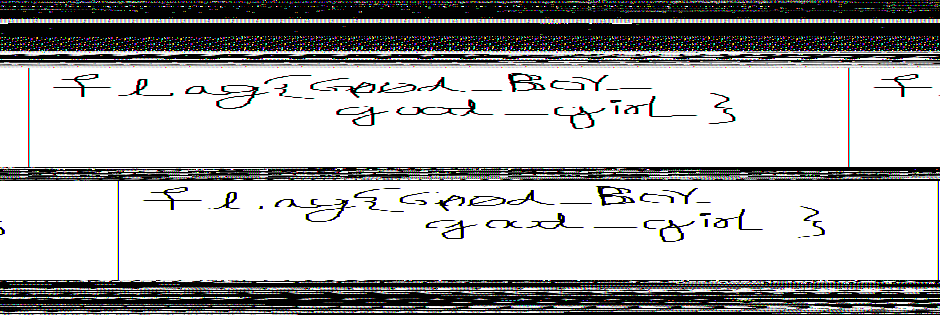 flag{Good_Boy_
good_girl}
flag{Good_Boy_
good_girl}